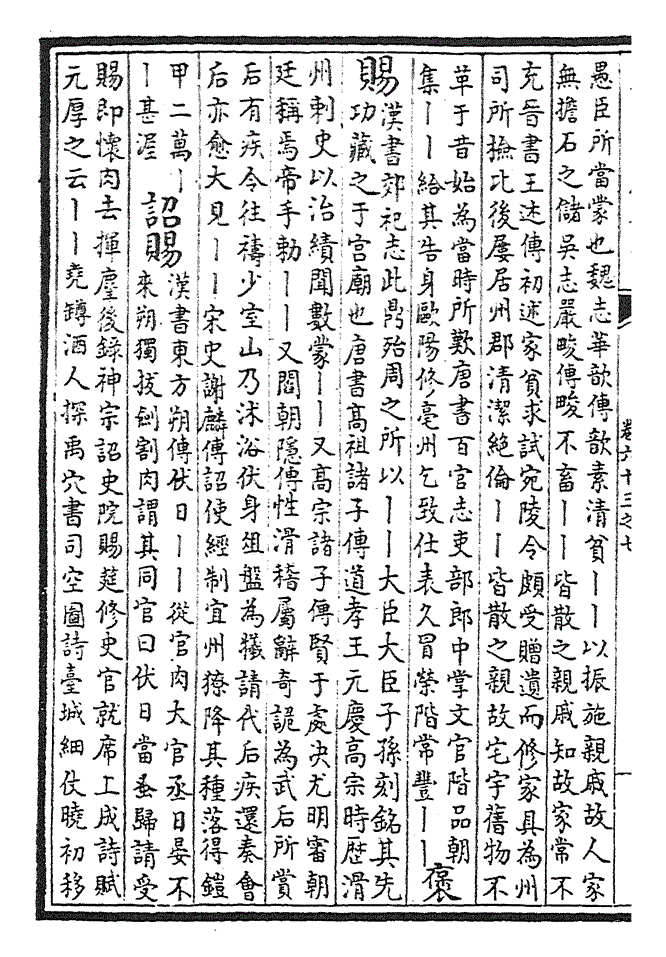 愚臣所當蒙也魏志華歆傳歆素清貧丨丨以振施親戚故人家
無擔石之儲吳志嚴畯傳畯不畜丨丨皆散之親戚知故家常不
充晉書王述傳初述家貧求試宛陵令頗受贈遺而修家具為州
司所檢比後屢居州郡清潔絕倫丨丨皆散之親故宅宇舊物不
革于昔始為當時所歎唐書百官志吏部郎中掌文官階品朝
集丨丨給其告身歐陽修亳州乞致仕表久冒榮階常豐丨丨
褒賜
漢書郊祀志此鼎殆周之所以丨丨大臣大臣子孫刻銘其先
功藏之于宫廟也唐書高祖諸子傳道孝王元慶高宗時歷滑
州刺史以治績聞數蒙丨丨又高宗諸子傳賢于處决尤明審朝
廷稱焉帝手勅丨丨又閻朝隱傳性滑稽屬辭奇詭為武后所賞
后有疾令往禱少室山乃沐浴伏身俎盤為犧請代后疾還奏會
后亦愈大見丨丨宋史謝麟傳詔使經制宜州獠降其種落得鎧
甲二萬丨
丨甚渥
詔賜
漢書東方朔傳伏日丨丨從官肉大官丞日晏不
來朔獨拔劍割肉謂其同官曰伏日當蚤歸請受
賜即懷肉去揮麈後錄神宗詔史院賜筵修史官就席上成詩賦
元厚之云丨丨堯罇酒人探禹穴書司空圖詩臺城細仗曉初移
卷六十三之七